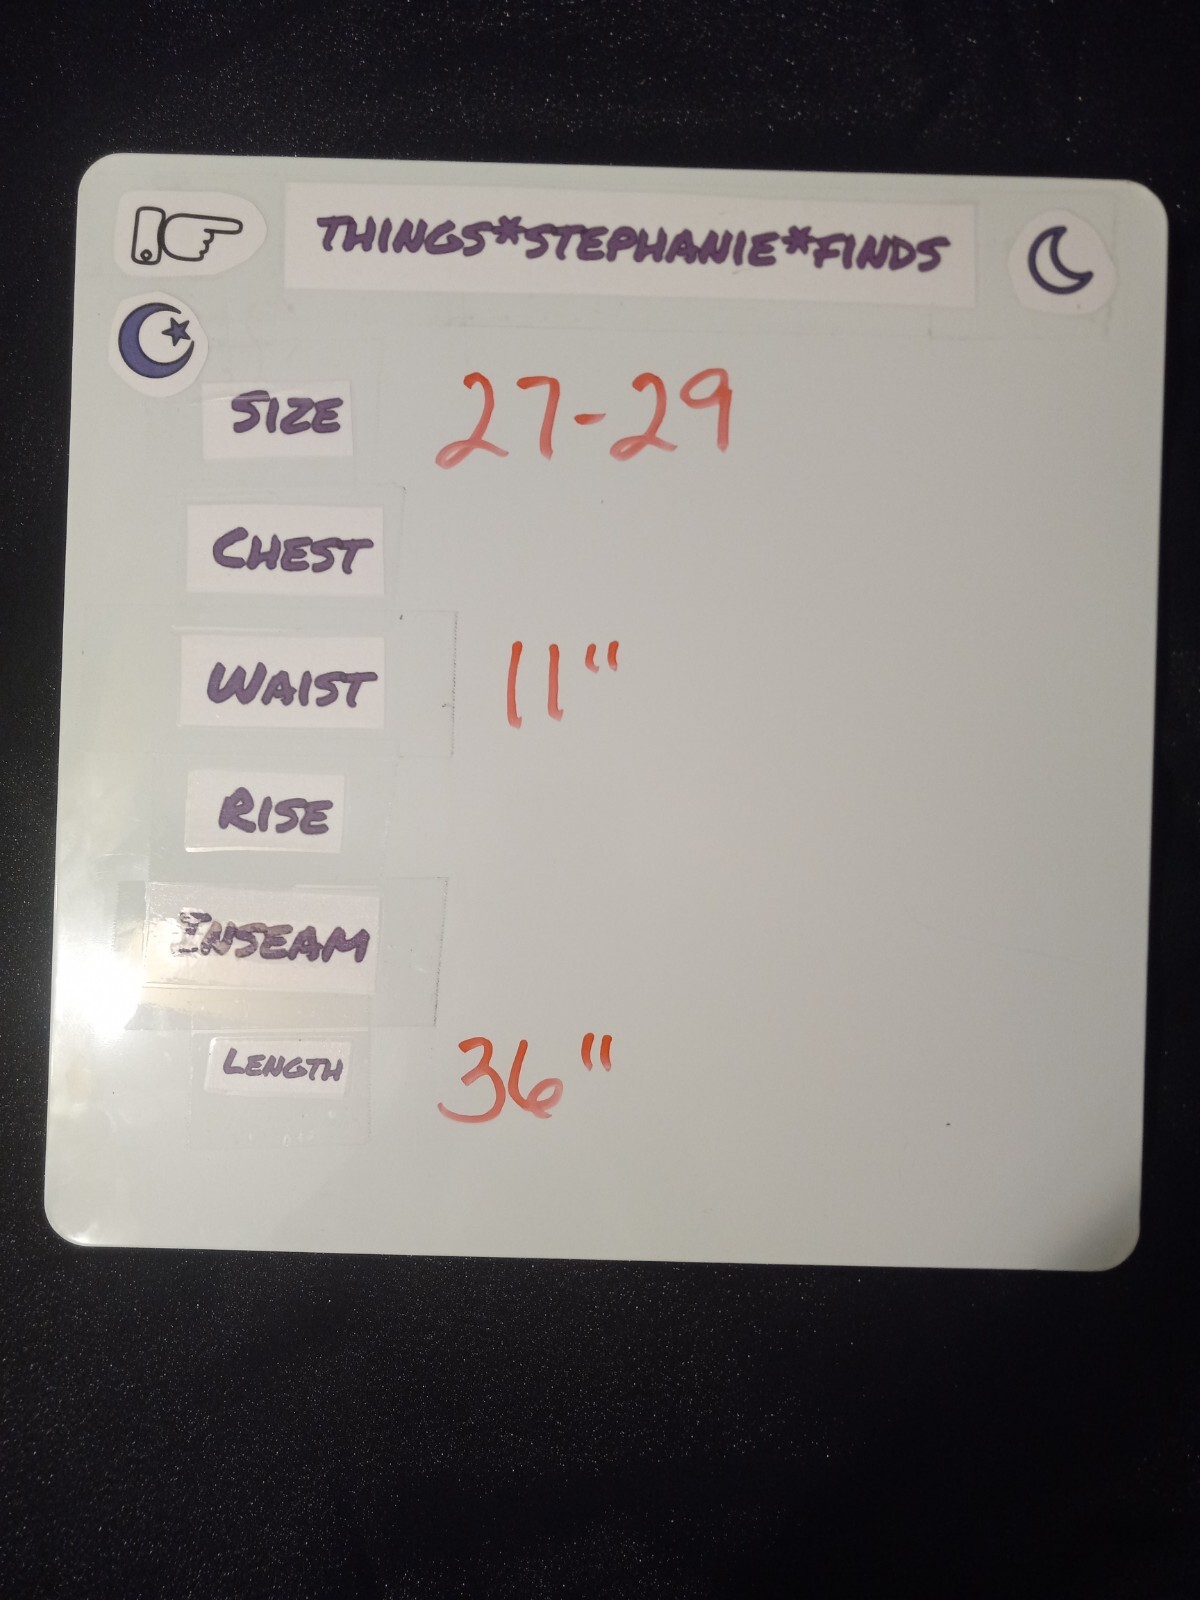 THINGS*STEPHANIE*FINDS
SIZE 27-29
CHEST
WAIST 11"
RISE
INSEAM
LENGTH 36"